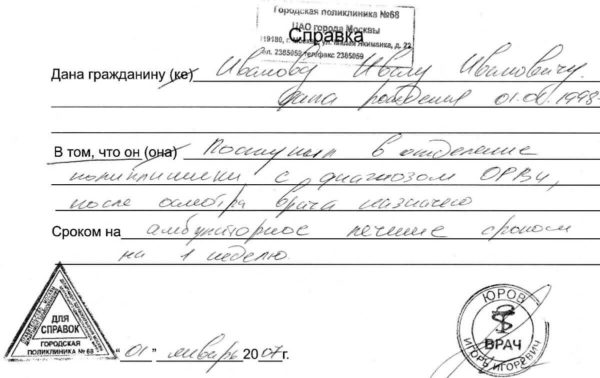 Городская поликлиника №68
ЦАО города Москвы
119180, г. Москва, ул. Малая Якиманка, д. 22
Тел. 2385059 телефакс 2385059
Справка
Дана гражданину (ке) Иванову Ивану Ивановичу.
Дата рождения 01.01.1998
В том, что он (она) поступил в отделение
поликлиники с диагнозом ОРВИ,
после осмотра врача назначено
Сроком на амбулаторное лечение сроком
на 1 неделю.
ДЛЯ
СПРАВОК
ГОРОДСКАЯ
ПОЛИКЛИНИКА № 68
"01" январь 2007г.
ЮРОВ
ВРАЧ
ИГОРЬ ИГОРЕВИЧ